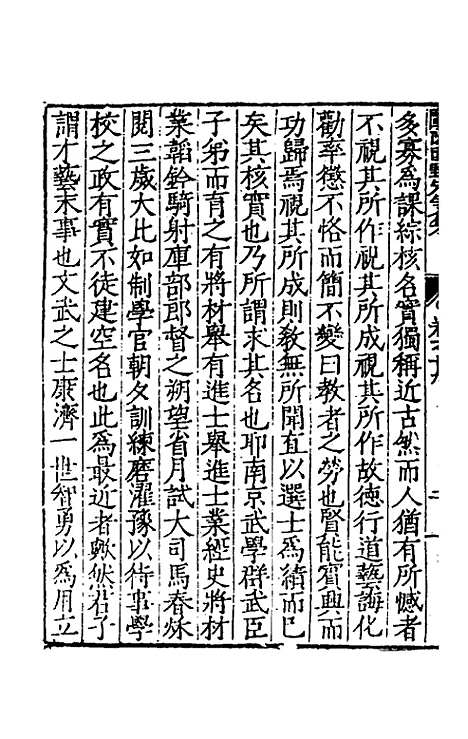 多寡為課綜核名實獨稱近古然而人猶有所憾者
不視其所作視其所成視其所作故德行道藝誨化
勸率懲不恪而簡不變曰教者之勞也賢能賓興而
功歸焉視其所成則敎無所聞直以選士爲績而已
矣其核實也乃所謂求其名也耶南京武學群武臣
子弟而育之有將材舉有進士舉進士業經史將材
業韜鈐騎射庫部郎督之朔望省月試大司馬春秌
閱三歲大比如制學官朝夕訓練磨濯豫以待事學
校之政有實不徒建空名也此為最近者歟然君子
謂才藝末事也文武之士康濟一世智勇以為用立